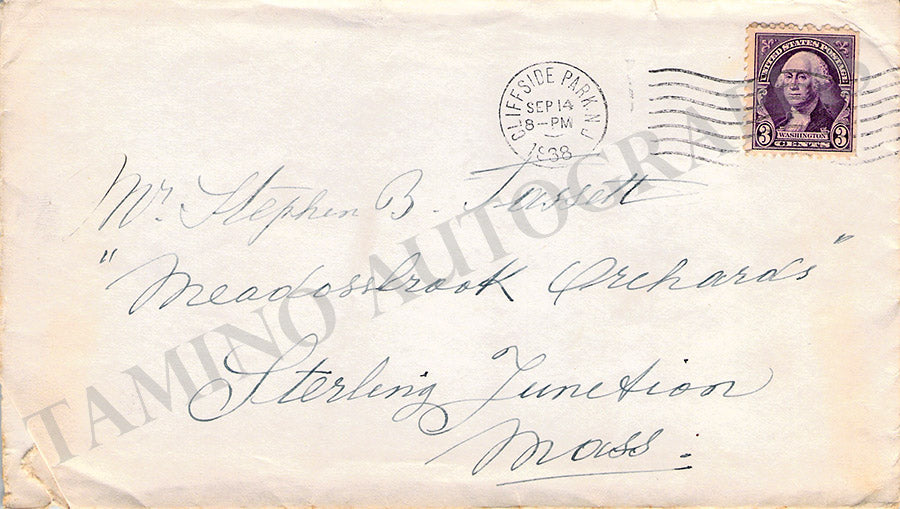 UNITED STATES POSTAGE
3 WASHINGTON 3
CENTS
CLIFFSIDE PARK. N.J
SEP 14
8-PM
1938
Mr. Stephen B. Fassett
"Meadossbrook Orchards"
Sterling Junction
Mass.
TAMINO AUTOGRAPHS